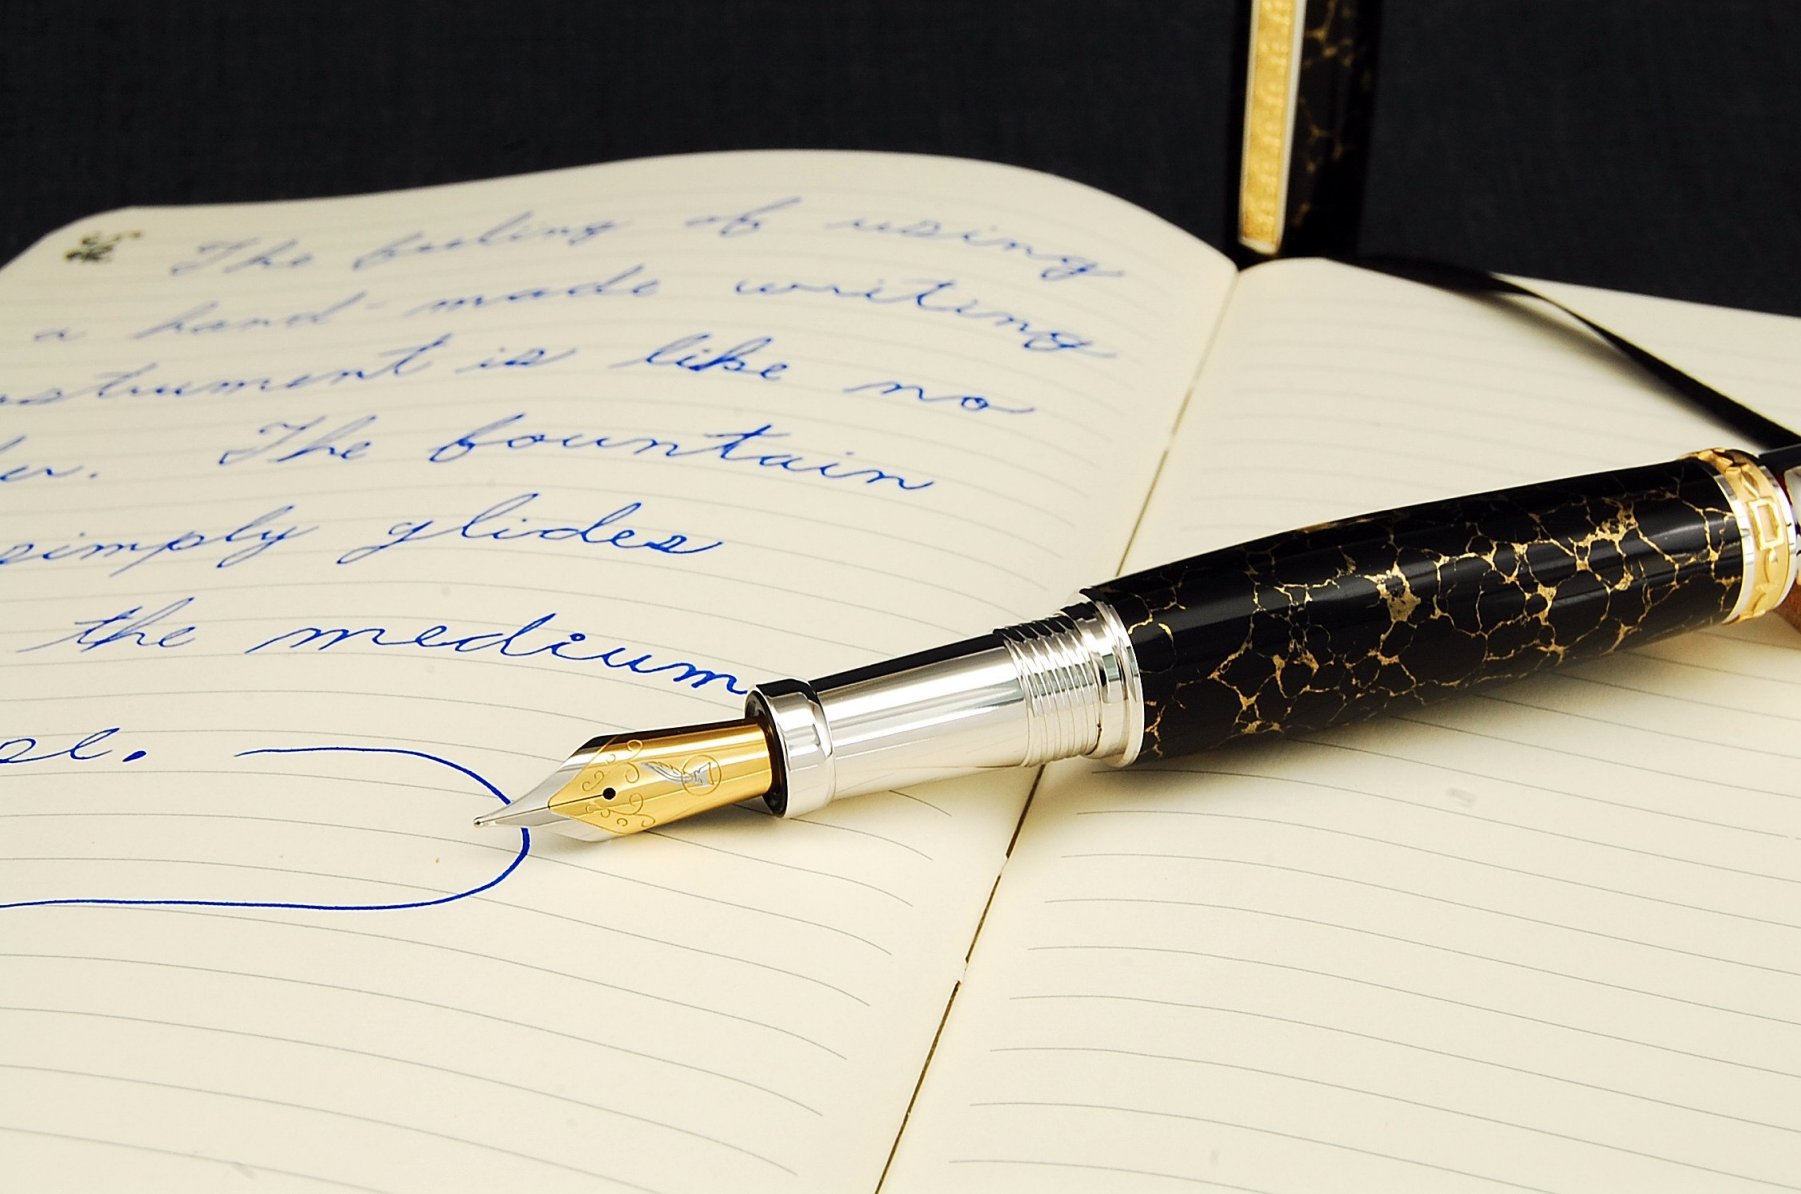 The feeling of using
a hand-made writing
strument is like no
The fountain
simply glides
the medium